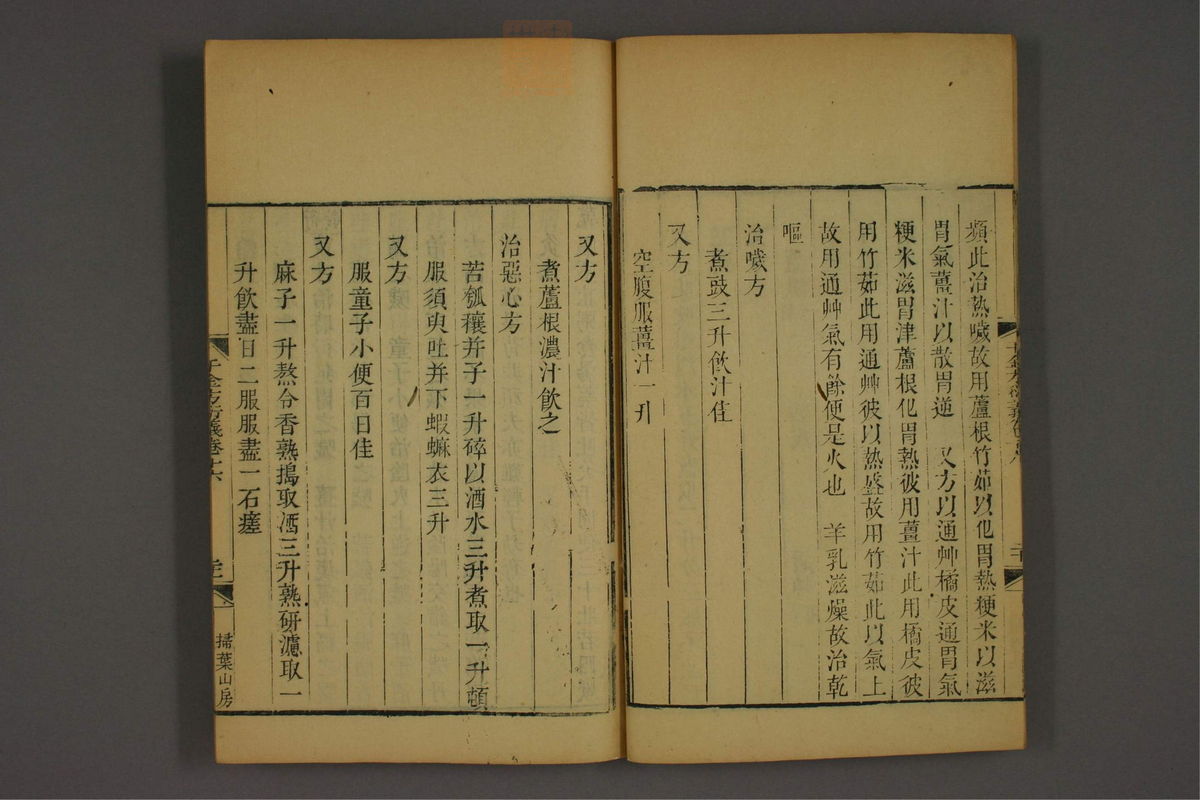 蘋此治熱噦故用蘆根竹茹以化胃熱粳米以滋
胃氣薑汁以散胃逆　又方以通艸橘皮通胃氣
粳米滋胃津蘆根化胃熱彼用薑汁此用橘皮彼
用竹茹此用通艸彼以熱盛故用竹茹此以氣上
故用通艸氣有餘便是火也　羊乳滋燥故治乾
嘔
治噦方
煮豉三升飲汁佳
又方
空腹服薑汁一升
又方
煮蘆根濃汁飲之
治惡心方
苦瓠穰并子一升碎以酒水三升煮取一升頓
服須臾吐并下蝦蟆衣三升
又方
服童子小便百日佳
又方
麻子一升熬令香熟搗取酒三升熟研濾取一
升飲盡日二服服盡一石瘥
千金方衍義卷十六
掃葉山房